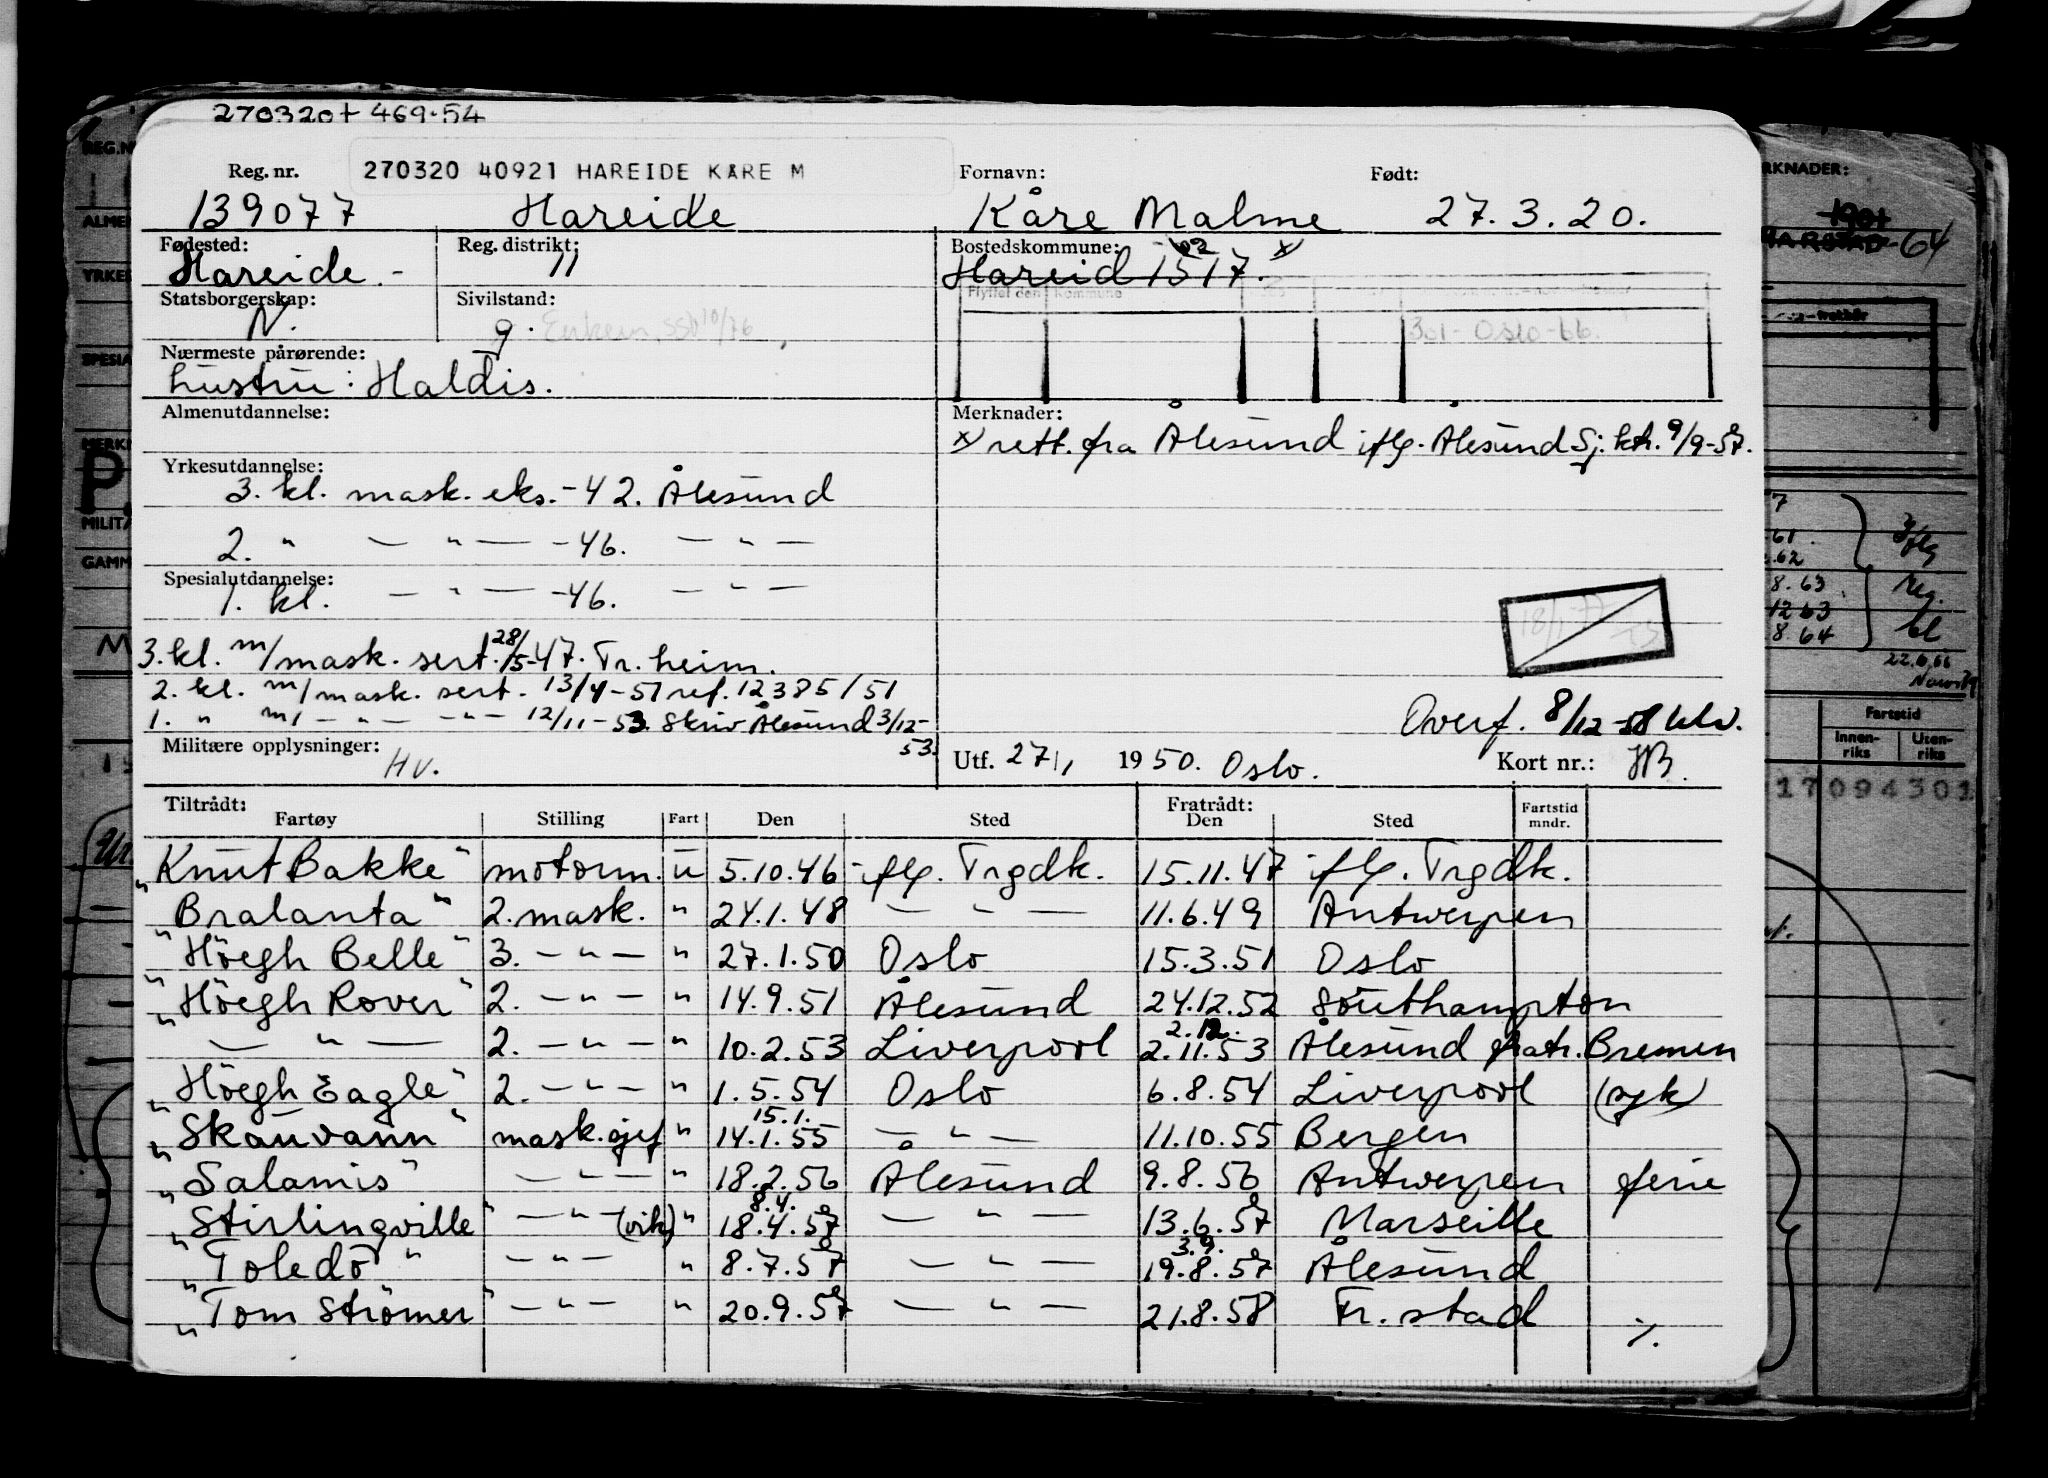 270320+ 469.54
Reg. nr. 270320 40921 HAREIDE KÅRE M Fornavn: Født:
139077 Hareide Kåre Malme 27.3.20.
Fødested: Reg. distrikt: Bostedskommune: 02 x
Hareide.- 11 Hareid 1517.
Statsborgerskap: Sivilstand: Flyttet den Kommune
N. g. Enkem. SSB 10/76 301 - Oslo -66.
Nærmeste pårørende:
hustru: Haldis.
Almenutdannelse: Merknader:
x) rett. fra Ålesund iflg. Ålesund Sj. ktr. 9/9-57.
Yrkesutdannelse:
3. kl. mask. eks. -42. Ålesund
2. " — " — -46. — " —
Spesialutdannelse:
1. kl. — " — -46. — " —
18/1-77
3. kl. m/mask. sert. 28/5-47. Tr.heim.
2. kl. m/mask. sert. 13/4-51 ref. 12385/51
1. " m/ — " — — " — 12/11-53. Skriv Ålesund 3/12-53.
Overf. 8/12-58
Militære opplysninger: HV.
Utf. 27/1 1950. Oslo. Kort nr.: HB.
Tiltrådt: Fratrådt: Fartstid mndr.
Fartøy Stilling Fart Den Sted Den Sted
"Knut Bakke" motorm. u 5.10.46 iflg. Trgdk. 15.11.47 iflg. Trgdk.
"Bralanta" 2. mask. " 24.1.48 — " — 11.6.49 Antwerpen
"Höegh Belle" 3. — " — " 27.1.50 Oslo 15.3.51 Oslo
"Höegh Rover" 2. — " — " 14.9.51 Ålesund 24.12.52 Southampton
2.12.
— " — 2. — " — " 10.2.53 Liverpool 2.11.53 Ålesund fratr. Bremen
"Höegh Eagle" 2. — " — " 1.5.54 Oslo 6.8.54 Liverpool (syk)
15.1.
"Skauvann" mask.sjef " 14.1.55 — " — 11.10.55 Bergen
"Salamis" — " — " 18.2.56 Ålesund 9.8.56 Antwerpen ferie
8.4.
"Stirlingville" — " — (vik) " 18.4.57 — " — 13.6.57 Marseille
3.9.
"Toledo" — " — " 8.7.57 — " — 19.8.57 Ålesund
"Tom Strömer" — " — " 20.9.57 — " — 21.8.58 Fr.stad
·/.
REG.N
ALMEN
YRKES
SPESIA
MERKN
P
MILITÆ
GAMM
M
RKNADER:
1901
HARSTAD -64
7
61.
.62
8.63
1263
8.64
iflg
reg.
bl
22.6.66
Fartstid
Innen-riks Uten-riks
17094301